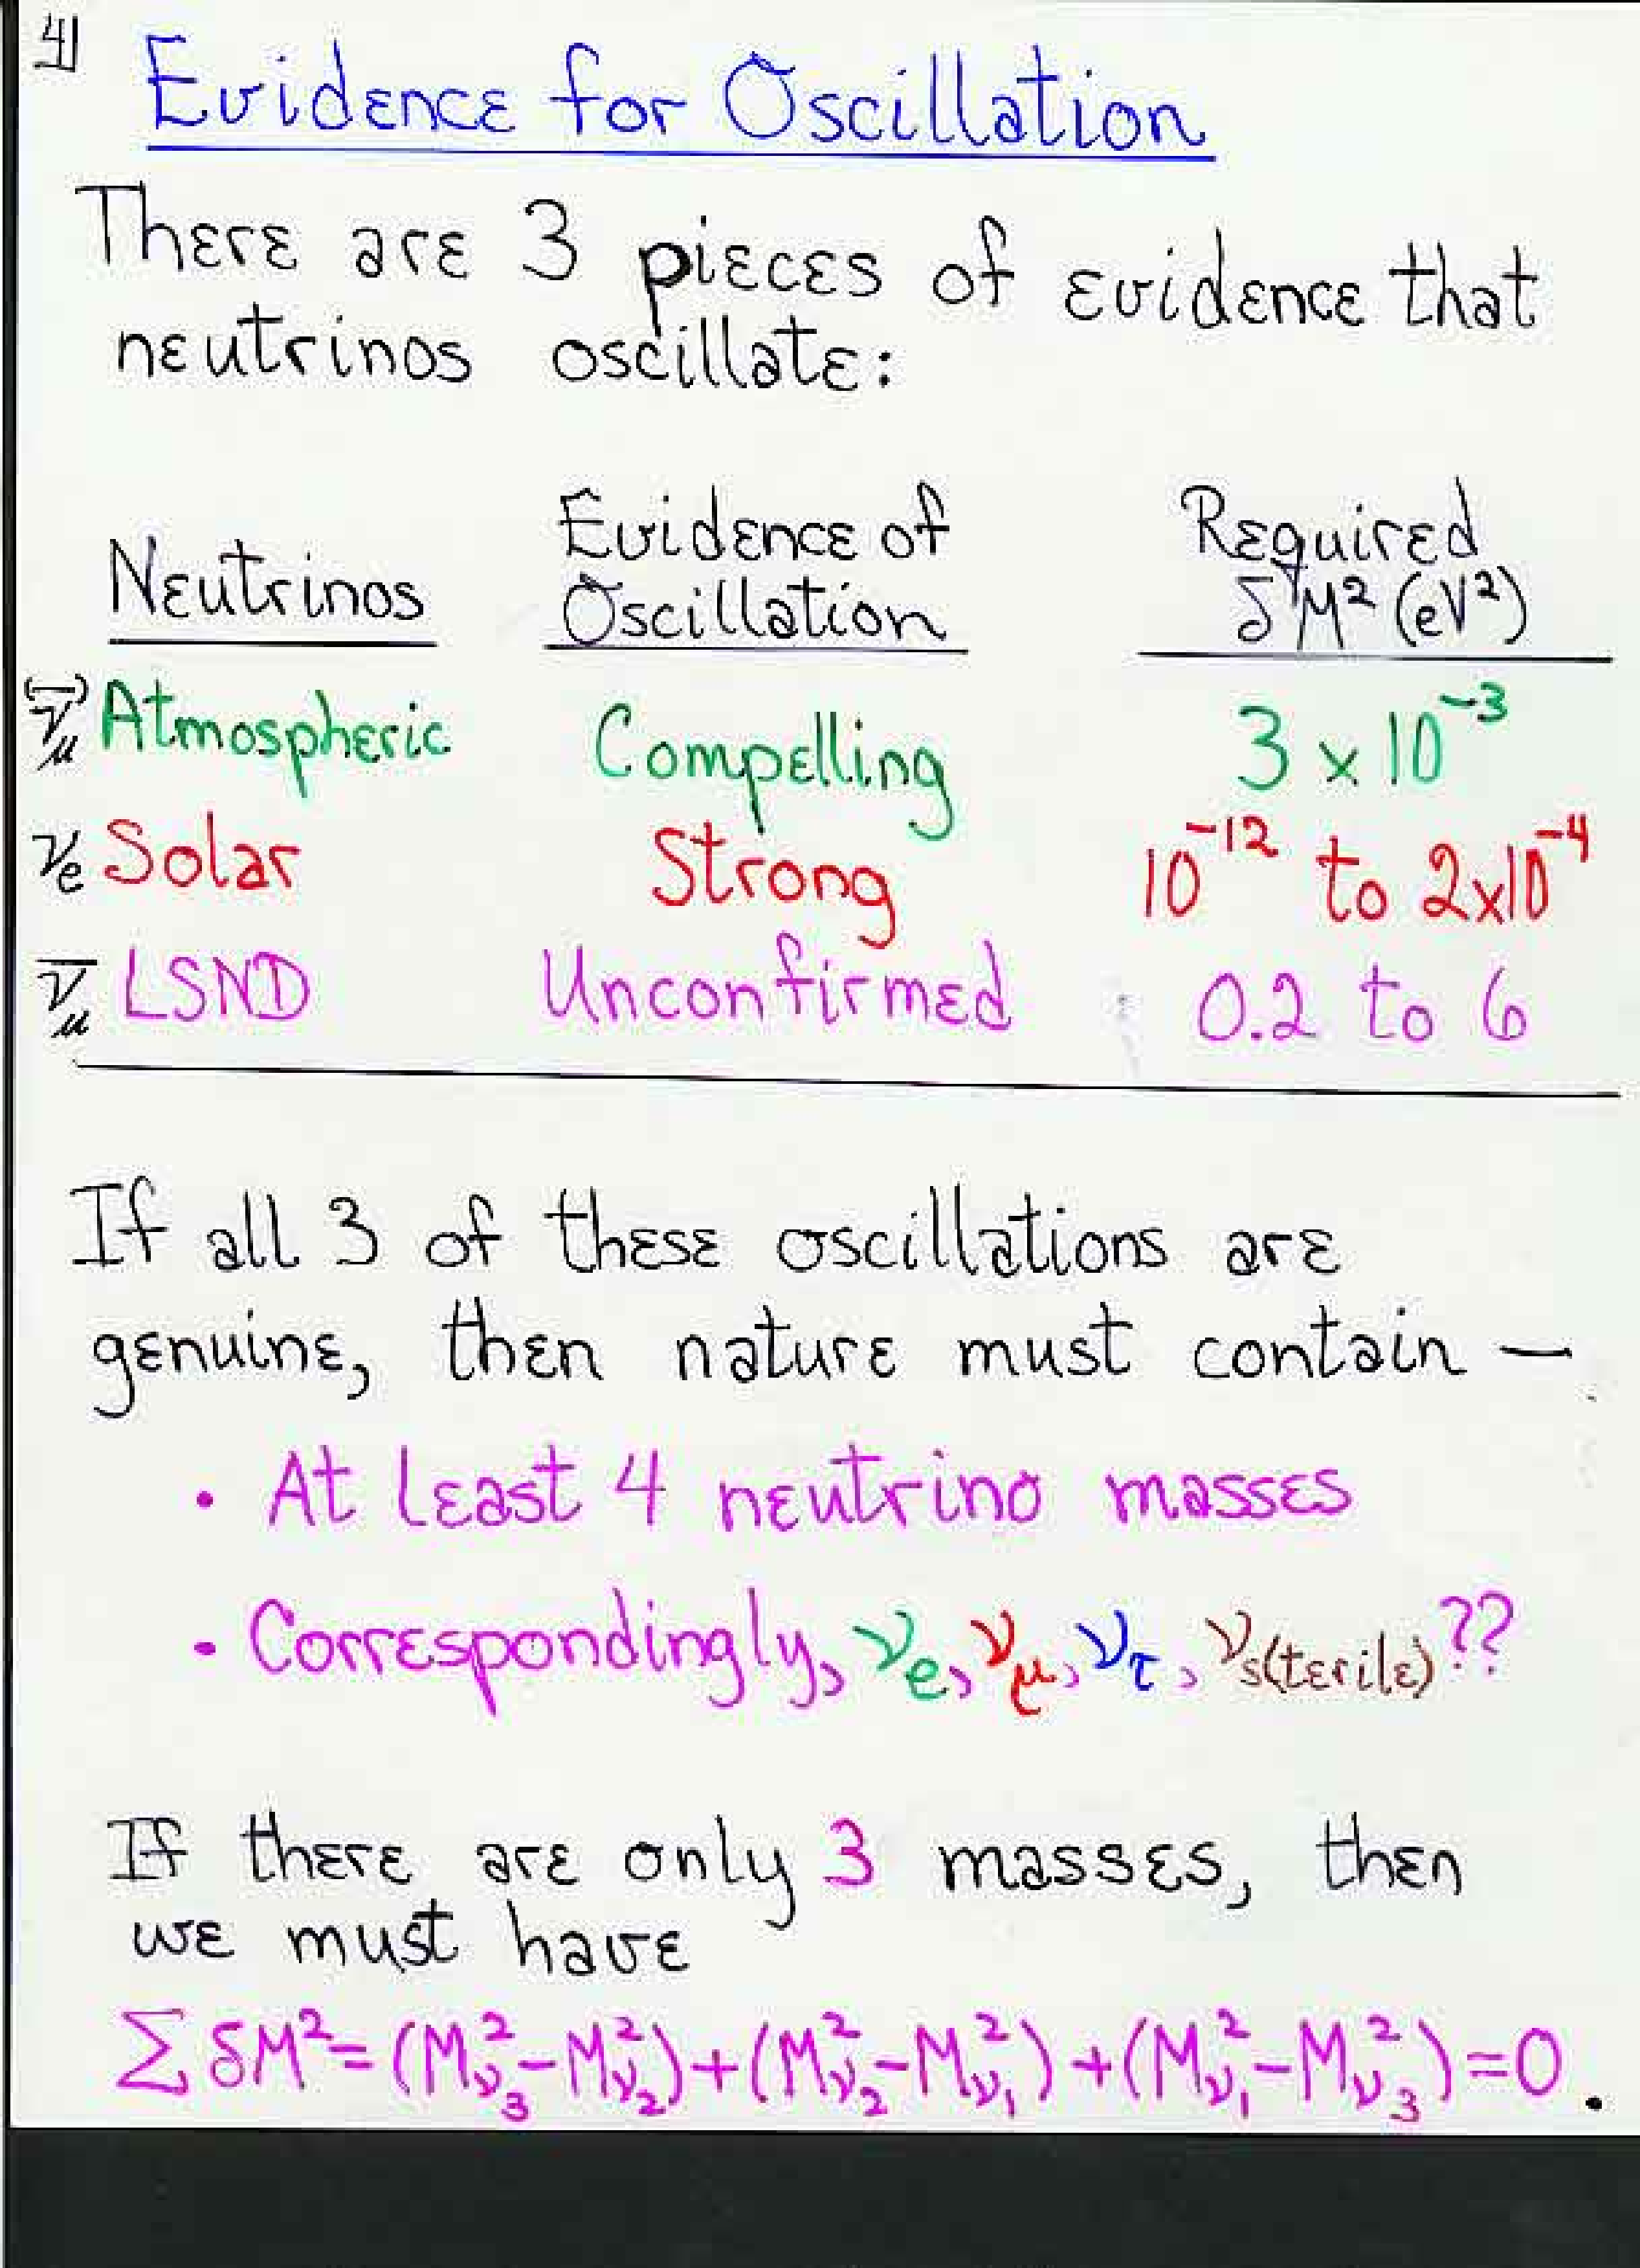 4
Evidence for Oscillation
There are 3 pieces of evidence that
neutrinos oscillate:
Neutrinos Evidence of Oscillation Required δM² (eV²)
(ν̄)μ Atmospheric Compelling 3 x 10⁻³
νe Solar Strong 10⁻¹² to 2x10⁻⁴
ν̄μ LSND Unconfirmed 0.2 to 6
If all 3 of these oscillations are
genuine, then nature must contain —
• At least 4 neutrino masses
• Correspondingly, νe, νμ, ντ, νs(terile)??
If there are only 3 masses, then
we must have
∑ δM² = (M²ν₃ − M²ν₂) + (M²ν₂ − M²ν₁) + (M²ν₁ − M²ν₃) = 0.